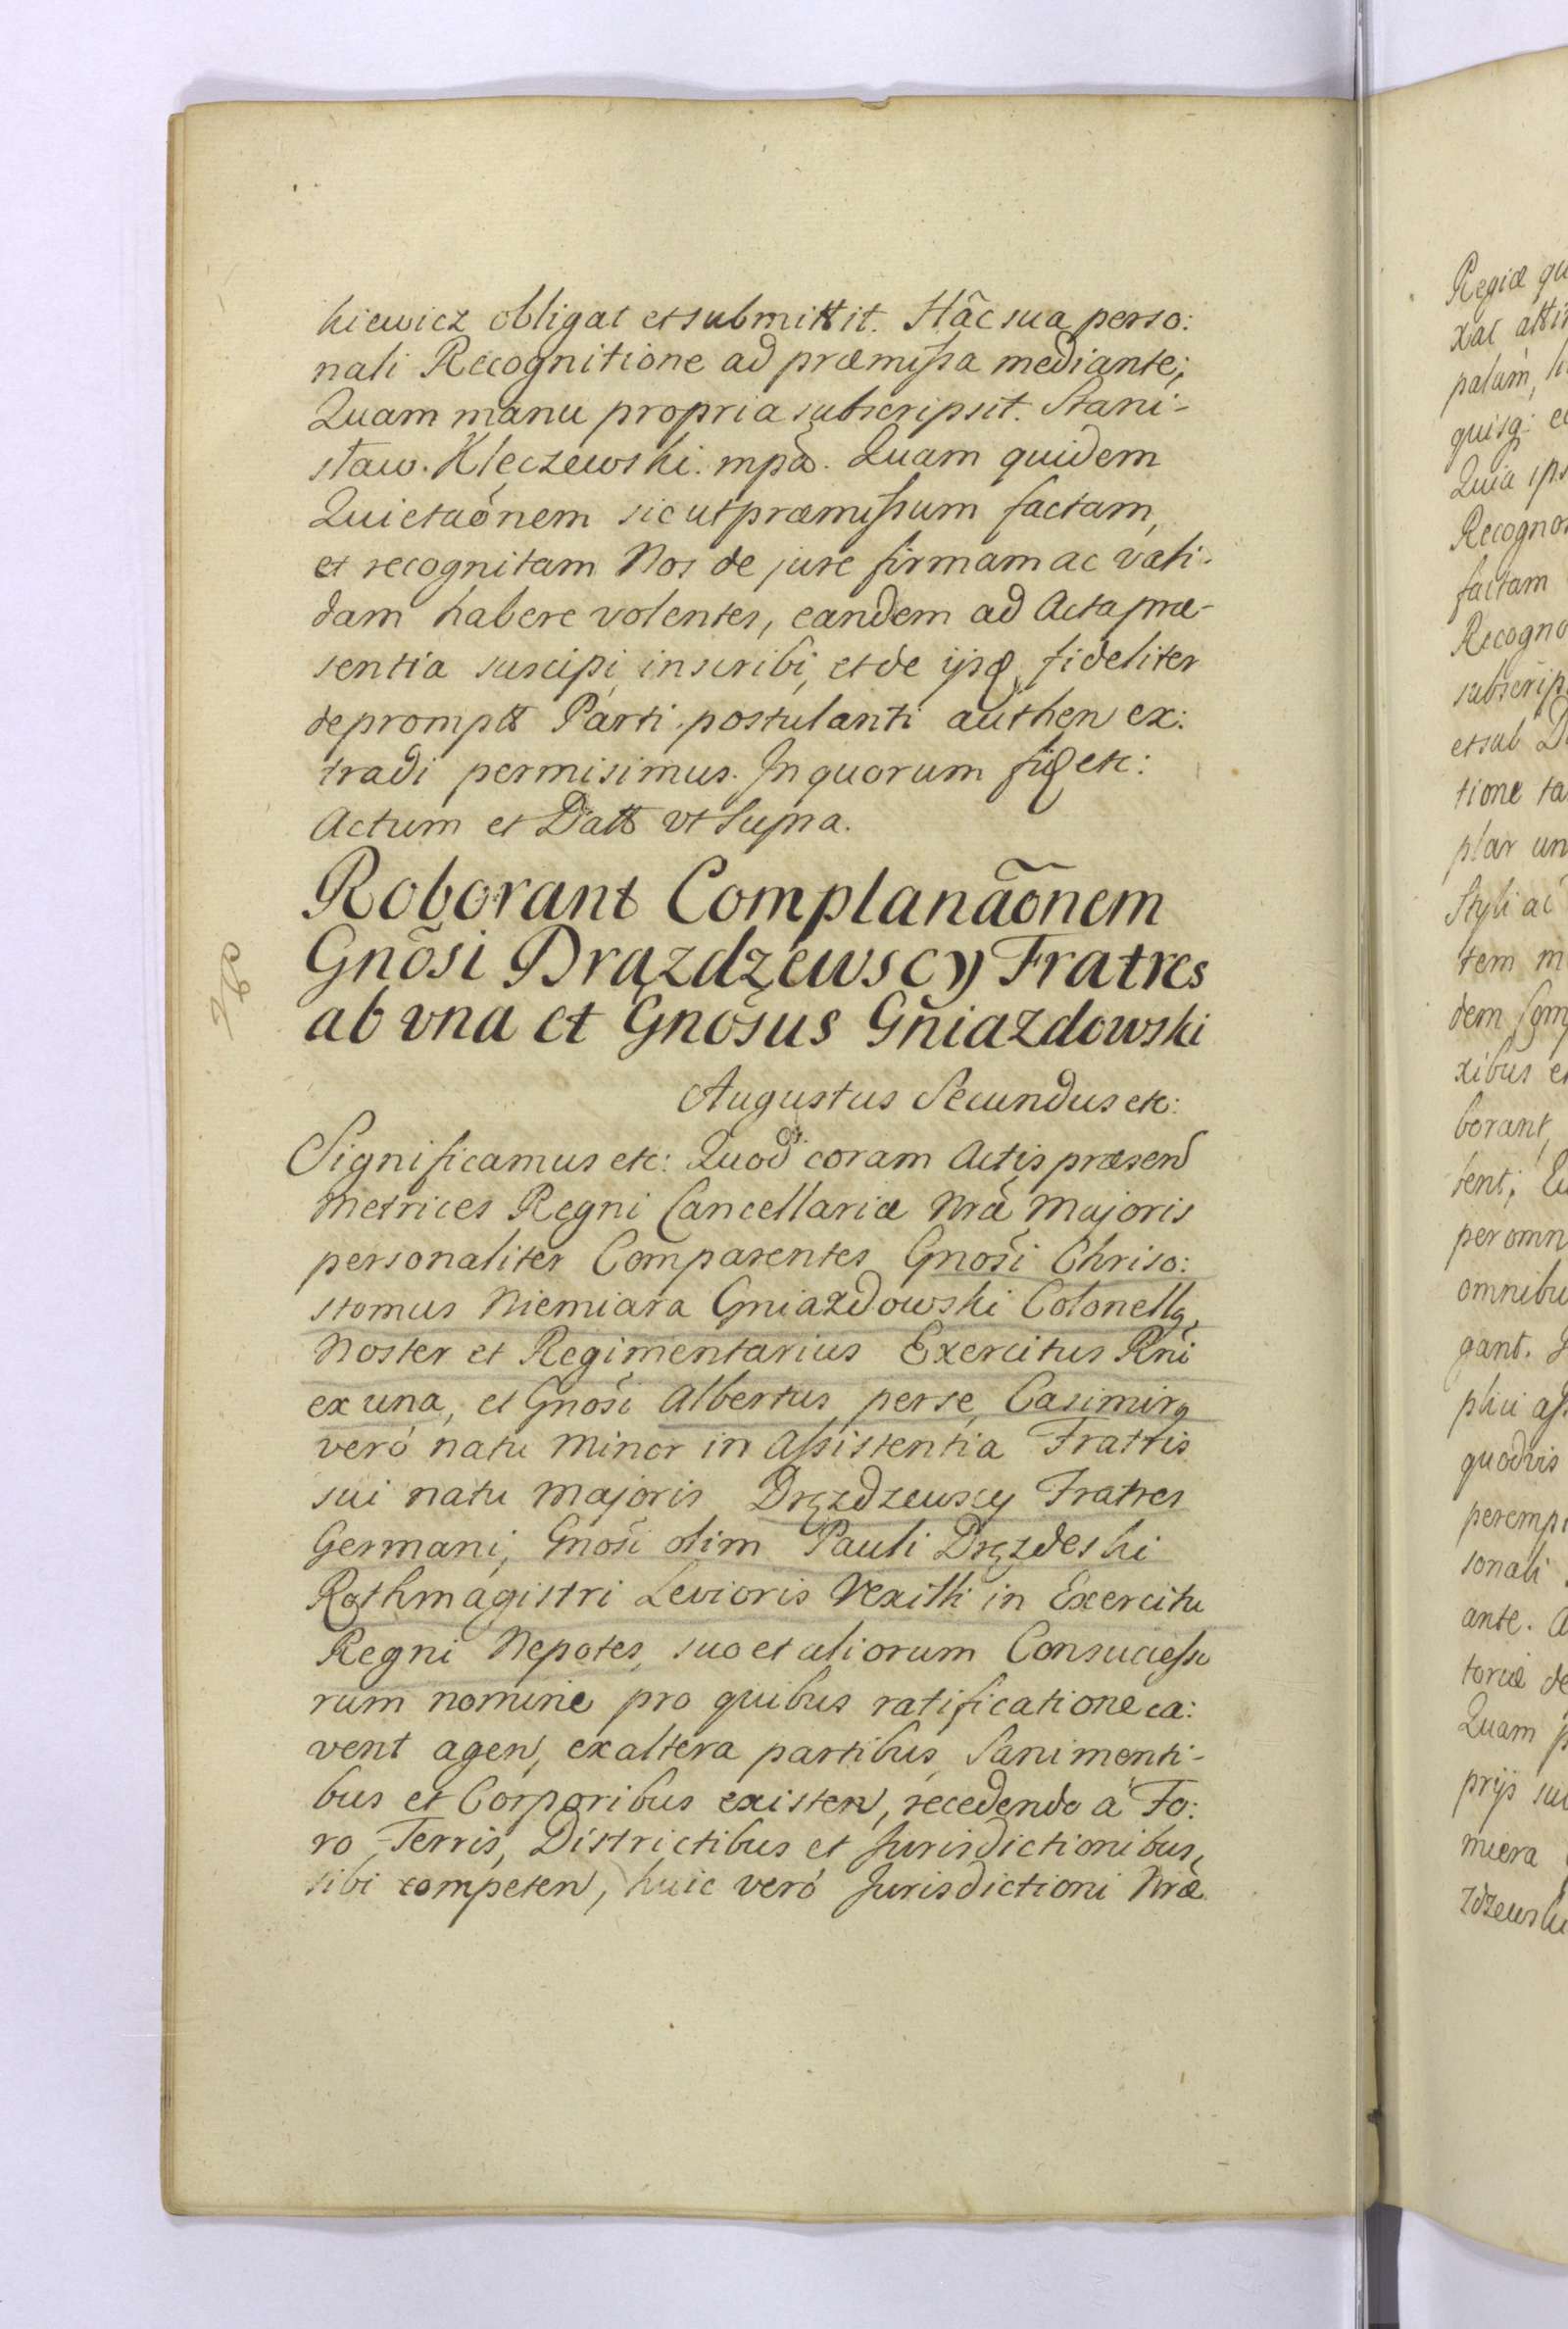 kiewicz obligat et submittit. Hâc sua perso:
nali Recognitione ad præmissa mediante;
Quam manu propria subscripsit. Stani-
sław. Kleczewski. mpã. Quam quidem
Quietaõnem sicut præmissum factam,
et recognitam Nos de jure firmam ac vali-
dam habere volentes, eandem ad Acta præ-
sentia suscipi, inscribi, et de ijsq, fideliter
deprompt Parti postulanti authen ex:
tradi permisimus. In quorum fid etc:
Actum et Datt vt Supra.
Roborant Complanaõnem
Gnõsi Drązdzewscy Fratres
ab vna et Gnõsus Gniazdowski
Augustus Secundus etc:
Significamus etc: Quod coram Actis præsen
Metrices Regni Cancellariæ Nrã Majoris
personaliter Comparentes Gnosi Chriso:
stomus Niemiara Gniazdowski Colonellq,
Noster et Regimentarius Exercitus Rñi
ex una, et Gnosi Albertus per se, Casimirq
veró natu Minor in Assistentia Fratris
sui natu Majoris Dręzdzewscy Fratres
Germani, Gnosi olim Pauli Dręzdeski
Rothmagistri Levioris Vexilli in Exercitu
Regni Nepotes, suo et aliorum Consucesso
rum nomine pro quibus ratificatione ca:
vent agen, ex altera partibus, Sani menti-
bus et Corporibus existen, recedendo à Fo:
ro Terris, Districtibus et Jurisdictionibus,
sibi competen, huic veró Jurisdictioni Nræ
Regiæ
palam,
Quia
factam
tione
plar
Styli ac
tem
dem
borant,
tent;
per omn
omnibu
gant.
quodvis
sonali
ante.
Quam